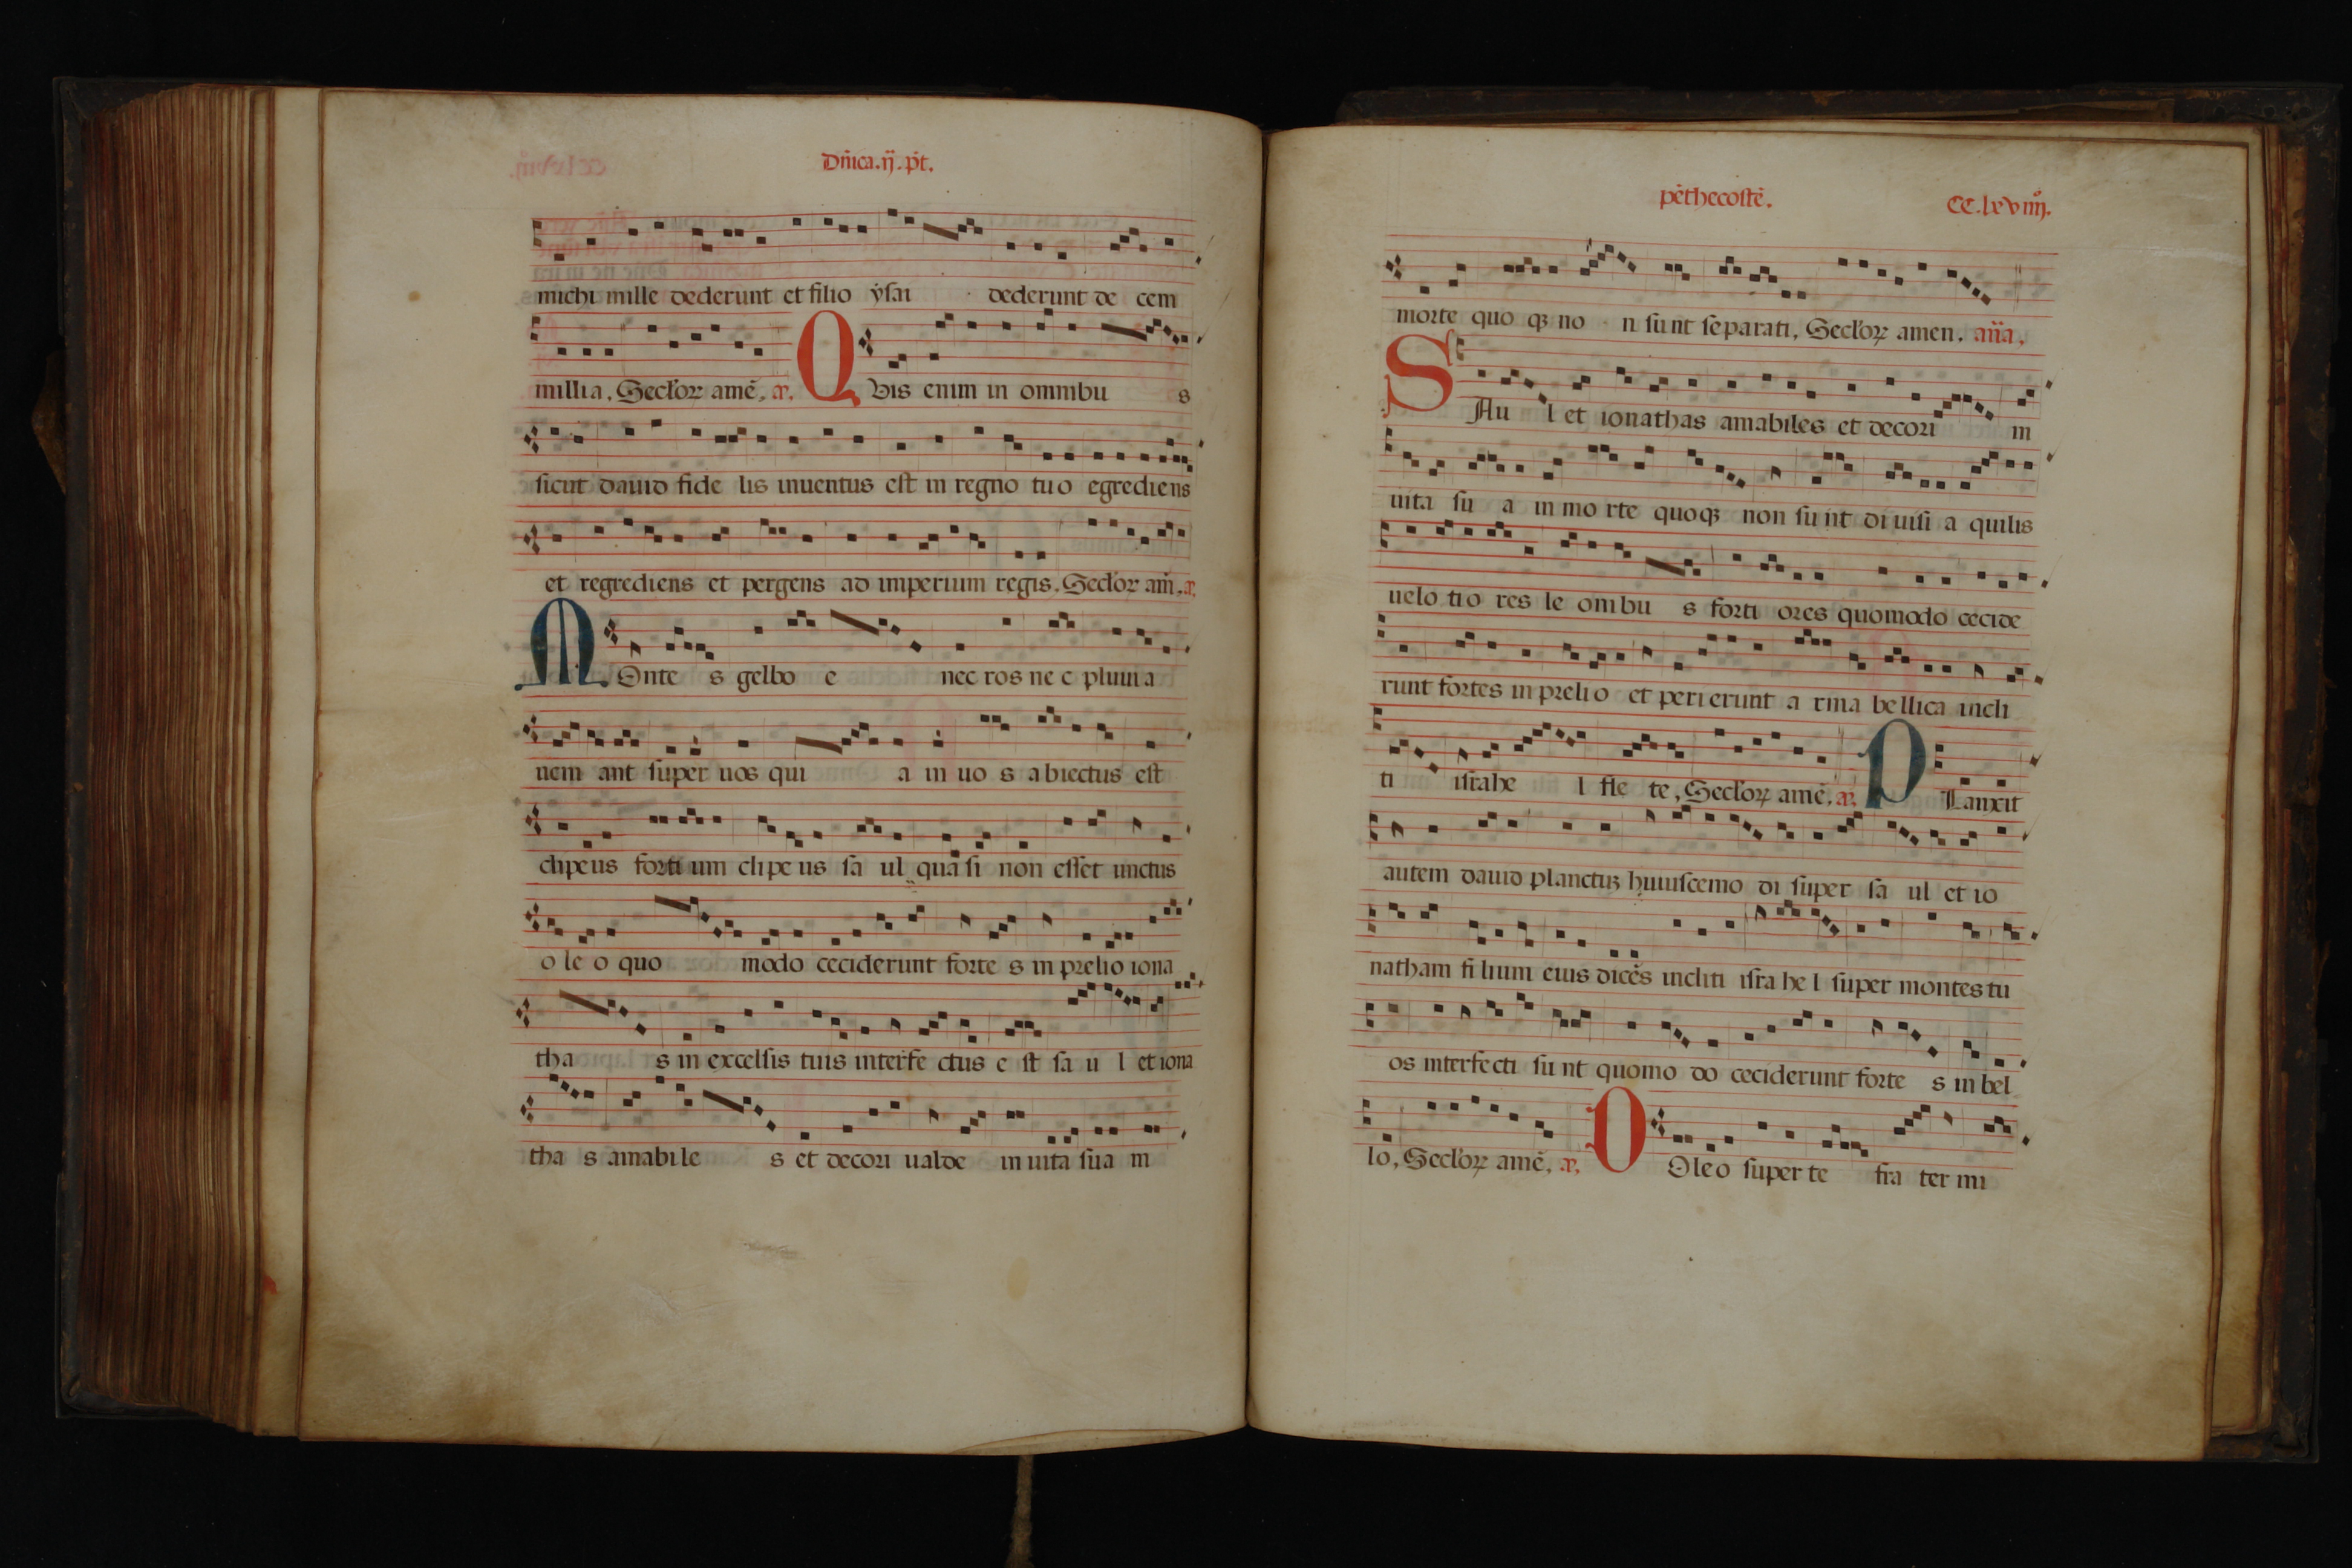 Dñica.ij.p̄t.
michi mille dederunt et filio ẏsai dederunt de cem
millia, Secl'oꝝ amē, æ. Q Vis enim in omnibu s
sicut dauid fide lis inuentus est in regno tuo egrediens
et regrediens et pergens ad imperium regis, Secl'oꝝ am̄. æ.
M Onte s gelbo e nec ros ne c pluuia
ueni ant super uos qui a in uo s abiectus est
clipeus forti um clipe us sa ul qua si non esset unctus
o le o quo modo ceciderunt forte s in prelio iona
tha s in excelsis tuis interfe ctus e st sa u l et iona
tha s amabile s et decori ualde in uita sua in
pēthecostē. CC.lxviiij.
morte quo qꝫ no n sunt separati, Secl'oꝝ amen, añа,
S Au l et ionathas amabiles et decori in
uita su a in mo rte quoqꝫ non su nt di uisi a quilis
uelo tio res le onibu s forti ores quomodo cecide
runt fortes in preli o et peri erunt a rma bellica incli
ti israhe l fle te, Secl'oꝝ amē. æ. P Lanxit
autem dauid planctuꝫ huiuscemo di super sa ul et io
natham fi lium eius dicēs incliti isra he l super montes tu
os interfecti su nt quomo do ceciderunt forte s in bel
lo, Secl'oꝝ amē, æ, D Oleo super te fra ter mi